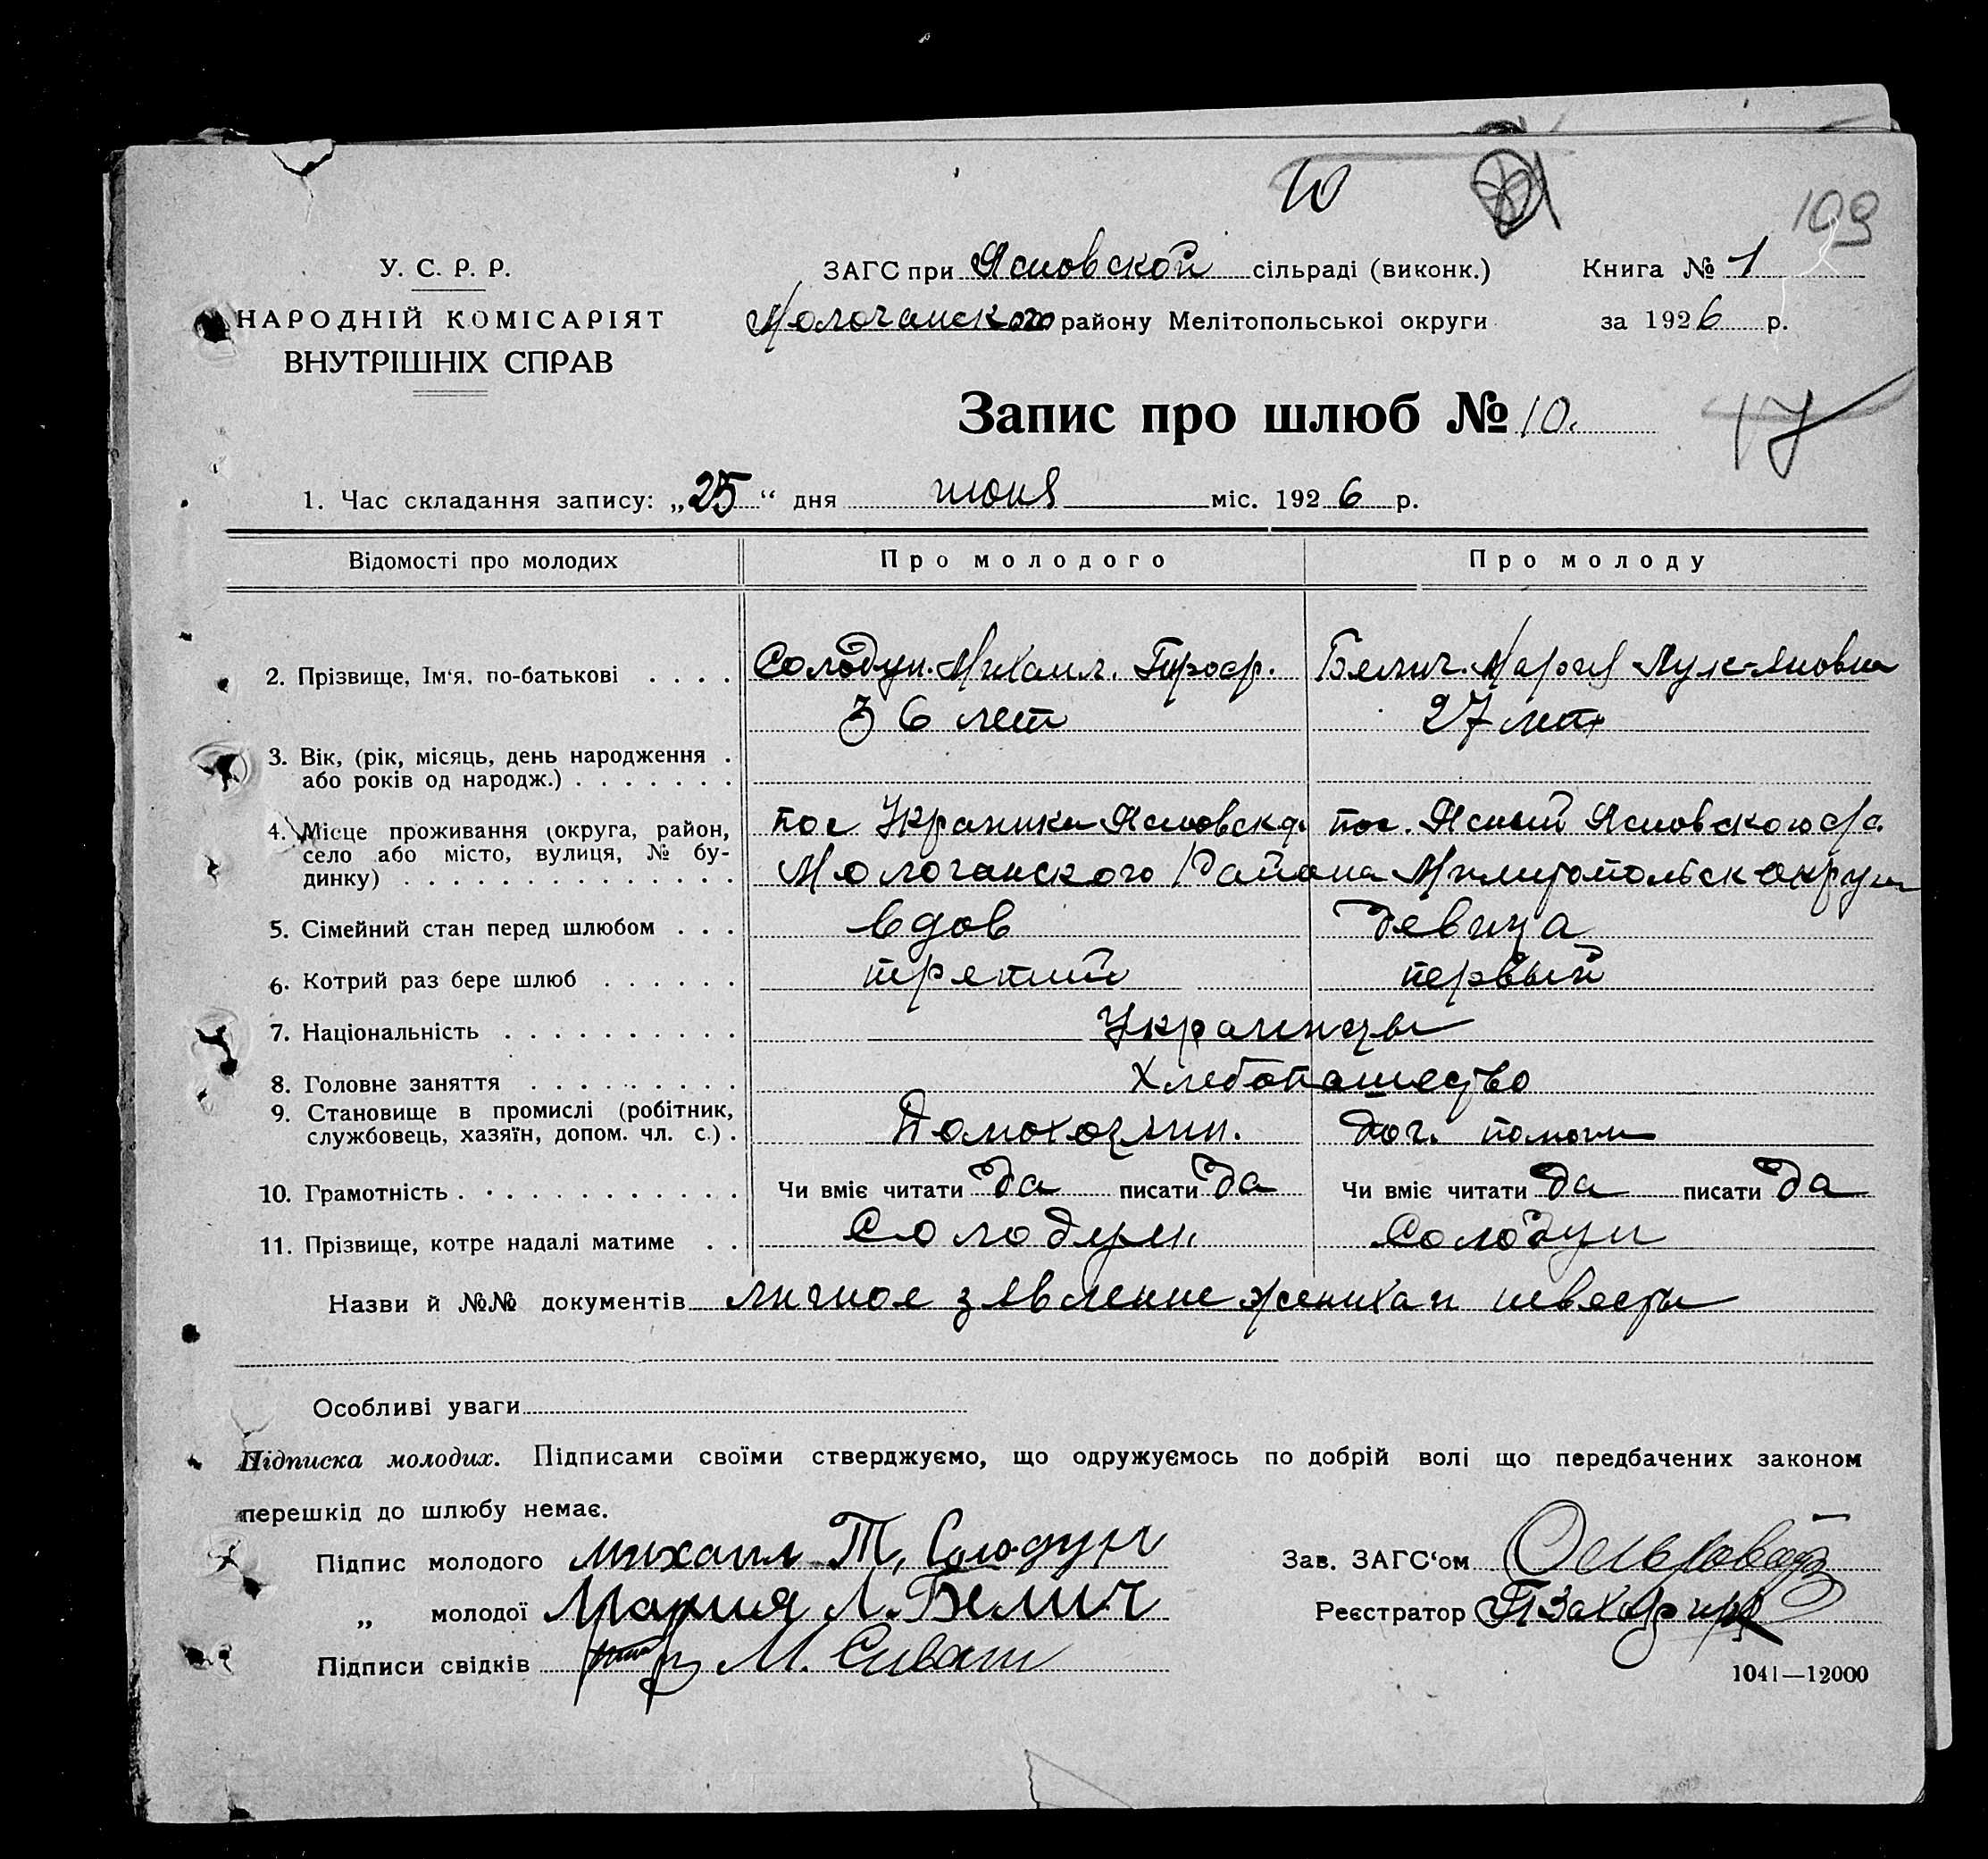 10
109
У. С. Р. Р.
НАРОДНІЙ КОМІСАРІЯТ
ВНУТРІШНІХ СПРАВ
ЗАГС при Ясновской сільраді (виконк.)
Молочанского району Мелітопольської округи
Книга № 1
за 1926 р.
Запис про шлюб № 10.
17
1. Час складання запису: „25“ дня июня міс. 1926 р.
Відомості про молодих
Про молодого
Про молоду
2. Прізвище, Ім‘я, по-батькові . . . . Солодун. Михаил. Белич. Мария Лук-яновна
36 лет 27 лет
3. Вік, (рік, місяць, день народження .
або років од народж.) . . . . . . .
4. Місце проживання (округа, район,
село або місто, вулиця, № бу-
динку) . . . . . . . . . . . . . .
пос Украинка Ясновск пос. Ясный Ясновского с/с.
Молочанского Района Мелитопольск округи
5. Сімейний стан перед шлюбом . . . вдов девица
6. Котрий раз бере шлюб . . . . . . третий первый
7. Національність . . . . . . . . . . Украинцы
8. Головне заняття . . . . . . . . . Хлебопашество
9. Становище в промислі (робітник,
службовець, хазяїн, допом. чл. с.) . Домохозяин. доч. помощ
10. Грамотність . . . . . . . . . . . . Чи вміє читати да писати да Чи вміє читати да писати да
11. Прізвище, котре надалі матиме . . Солодун. Солодун
Назви й №№ документів личное зявление жениха и невесты
Особливі уваги
Підписка молодих. Підписами своїми стверджуємо, що одружуємось по добрій волі що передбачених законом
перешкід до шлюбу немає.
Підпис молодого михаил Т. Солодун
„ молодої Мария Л. Белич
Підписи свідків М. Сиваш
Зав. ЗАГС‘ом
Реєстратор
1041—12000